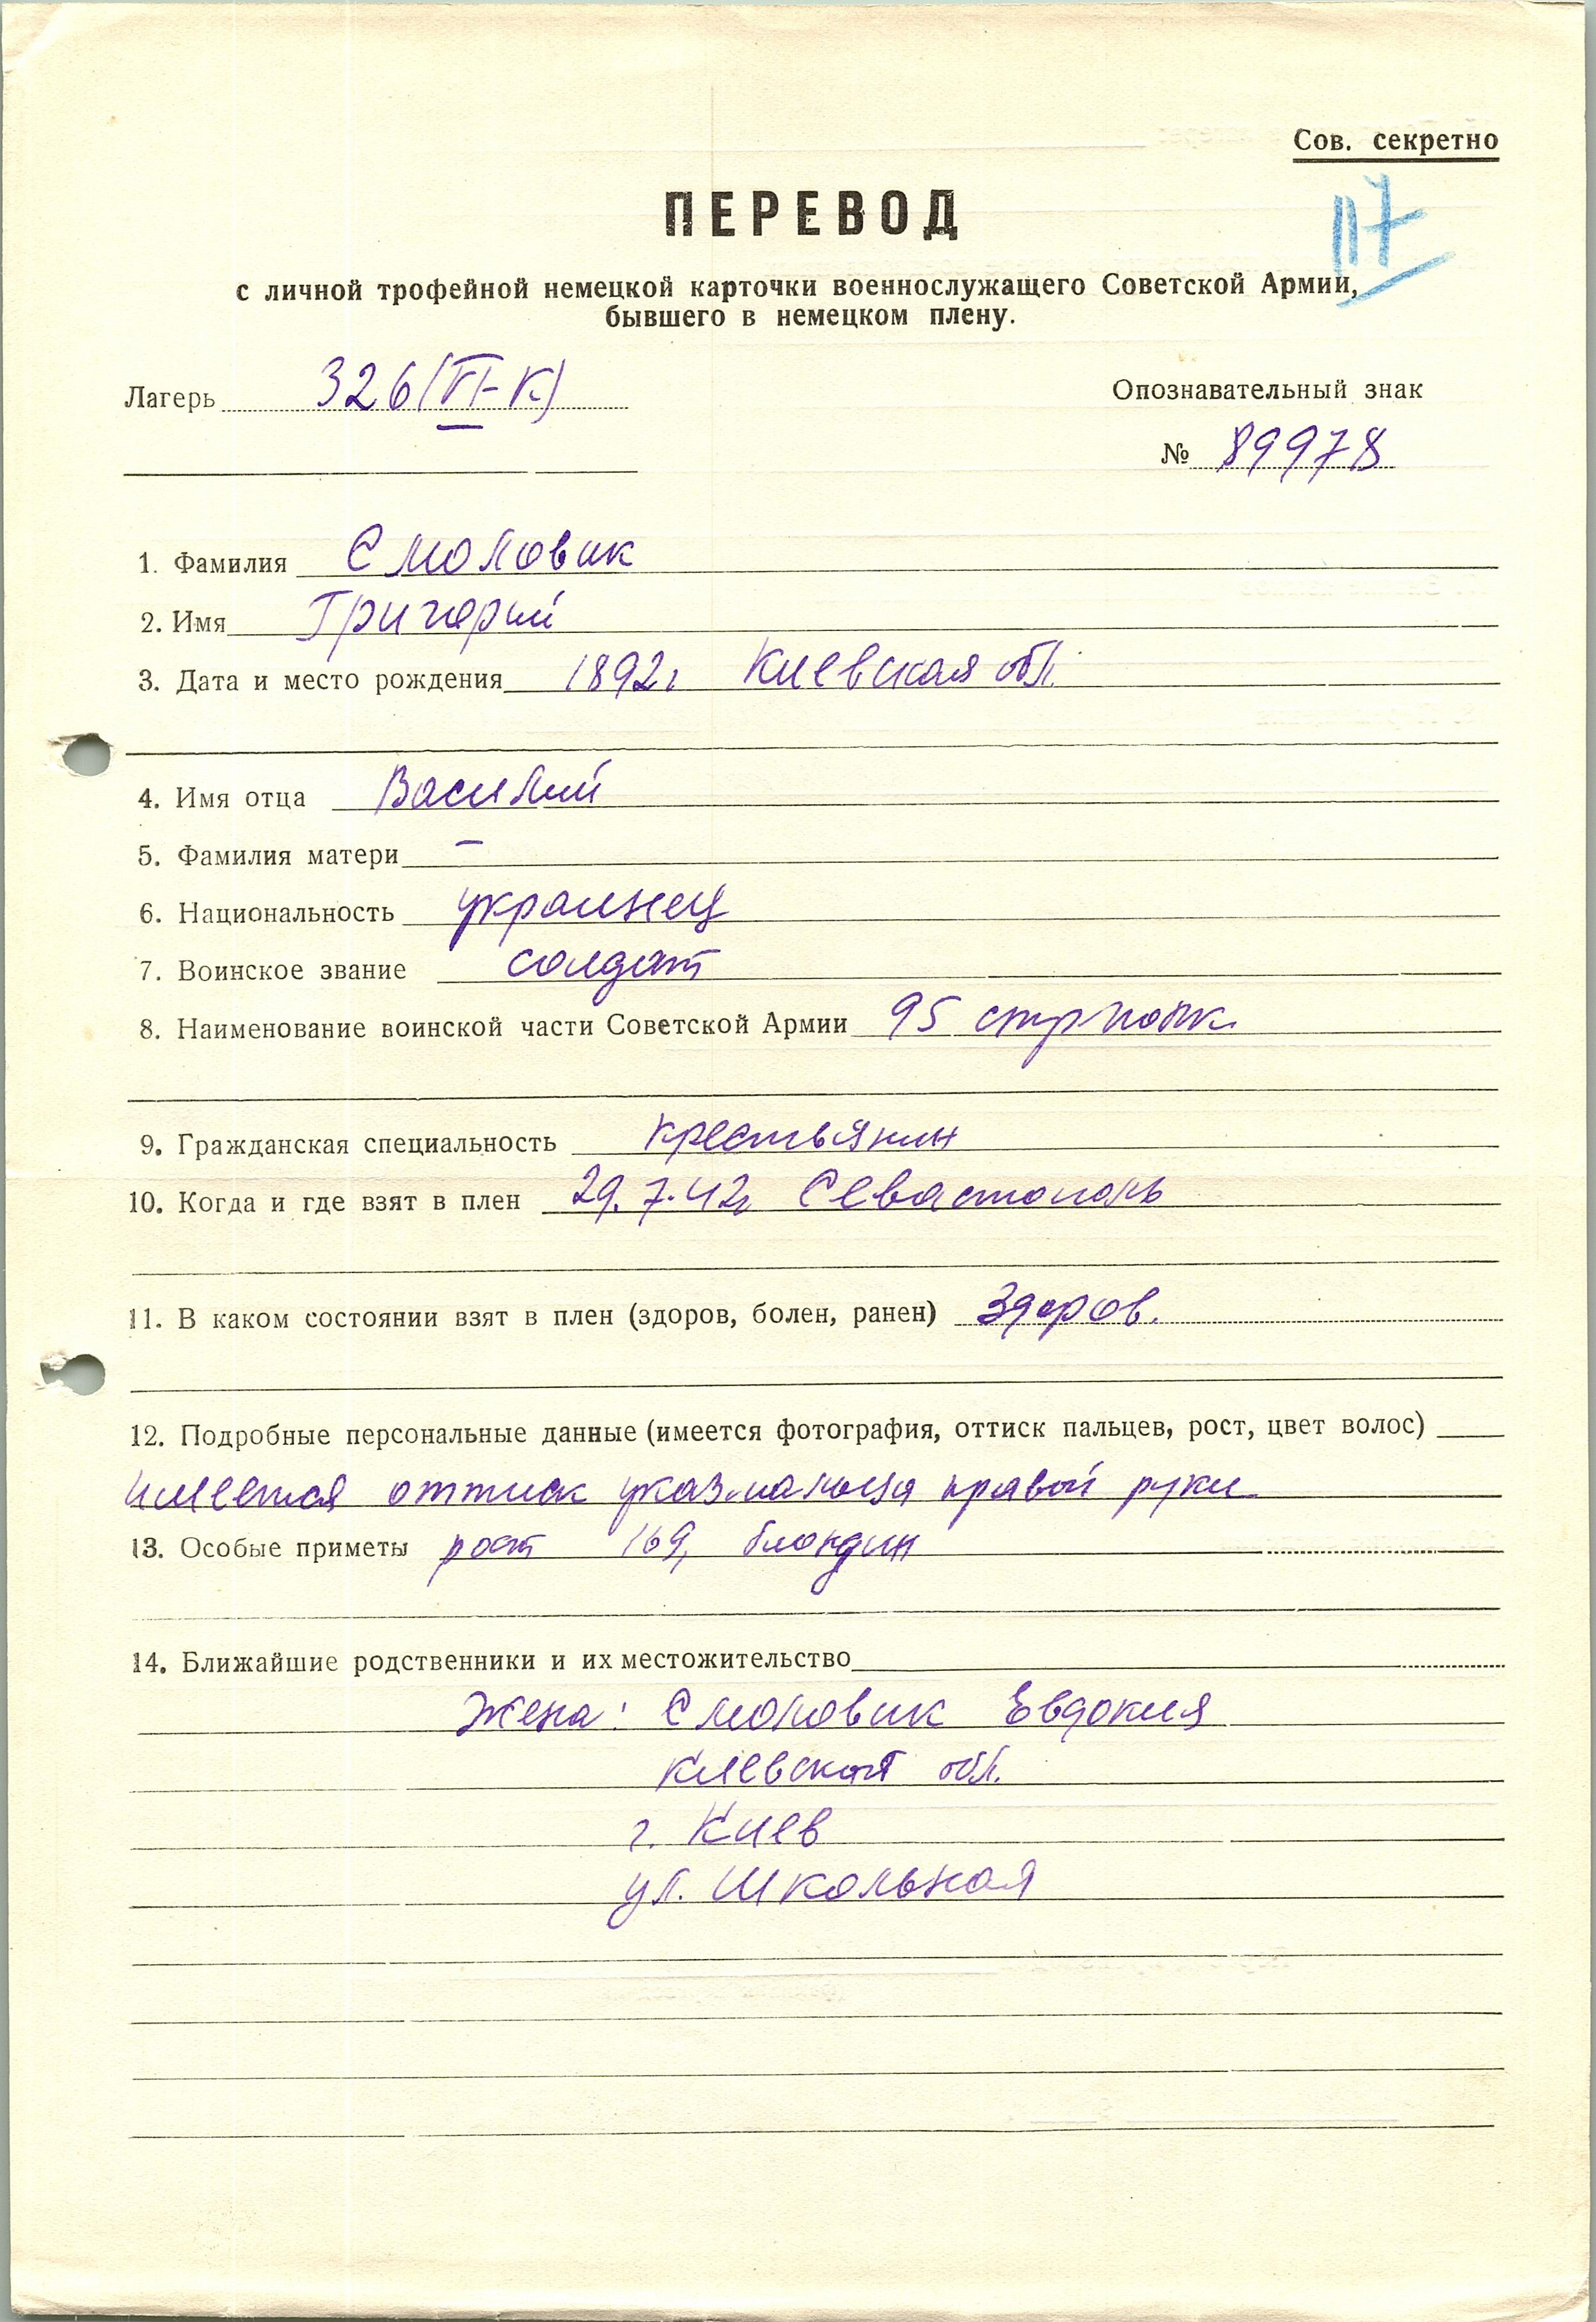 Сов. секретно
117
ПЕРЕВОД
с личной трофейной немецкой карточки военнослужащего Советской Армии,
бывшего в немецком плену.
Лагерь 326 (VI-К)
Опознавательный знак
№ 89978
1. Фамилия Смоловик
2. Имя Григорий
3. Дата и место рождения 1892г Киевская обл.
4. Имя отца Василий
5. Фамилия матери –
6. Национальность украинец
7. Воинское звание солдат
8. Наименование воинской части Советской Армии 95 стр полк.
9. Гражданская специальность крестьянин
10. Когда и где взят в плен 29.7.42г Севастополь
11. В каком состоянии взят в плен (здоров, болен, ранен) Здоров.
12. Подробные персональные данные (имеется фотография, оттиск пальцев, рост, цвет волос)
имеется оттиск указ.пальца правой руки
13. Особые приметы рост 169, блондин
14. Ближайшие родственники и их местожительство
Жена: Смоловик Евдокия
Киевская обл.
г. Киев
ул. Школьная